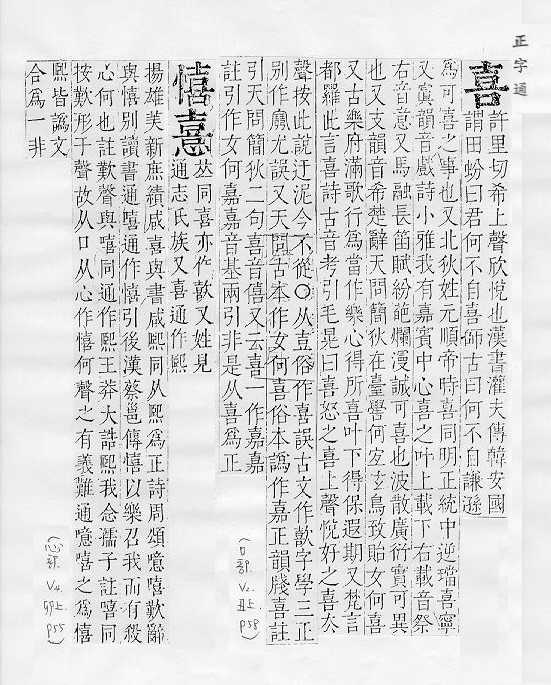 正字通
喜
許里切希上聲欣悅也漢書灌夫傳韓安國
謂田蚡曰君何不自喜師古曰何不自謙遜
為可喜之事也又北狄姓元順帝時喜同明正統中逆璫喜寧
又寘韻音戲詩小雅我有嘉賓中心喜之叶上載下右載音祭
右音意又馬融長笛賦紛葩爛漫誠可喜也波散廣衍實可異
也又支韻音希楚辭天問簡狄在臺嚳何宜玄鳥致貽女何喜
又古樂府滿歌行為當作樂心得所喜叶下得保遐期又梵言
都羅此言喜詩古音考引毛晃曰喜怒之喜上聲悅好之喜去
聲按此說迂泥今不從○从壴俗作憙誤古文作歖字學三正
別作 尤誤又天問古本作女何喜俗本譌作嘉正韻牋喜註
引天問簡狄二句喜音僖又云喜一作嘉嘉
註引作女何嘉嘉音基兩引非是从喜為正
憘憙
夶同喜亦作歖又姓見
通志氏族又喜通作熙
揚雄美新庶績咸喜與書咸熙同从熙為正詩周頌噫嘻歎辭
與憘別讀書通嘻通作憘引後漢蔡邕傳憘以樂召我而有殺
心何也註歎聲與嘻同通作熙王莽大誥熙我念孺子註嘻同
按歎形于聲故从口从心作憘何聲之有義難通噫嘻之為憘
熙皆譌文
合為一非
口部 V2.丑上. P58
心部 V4. 卯上. P55